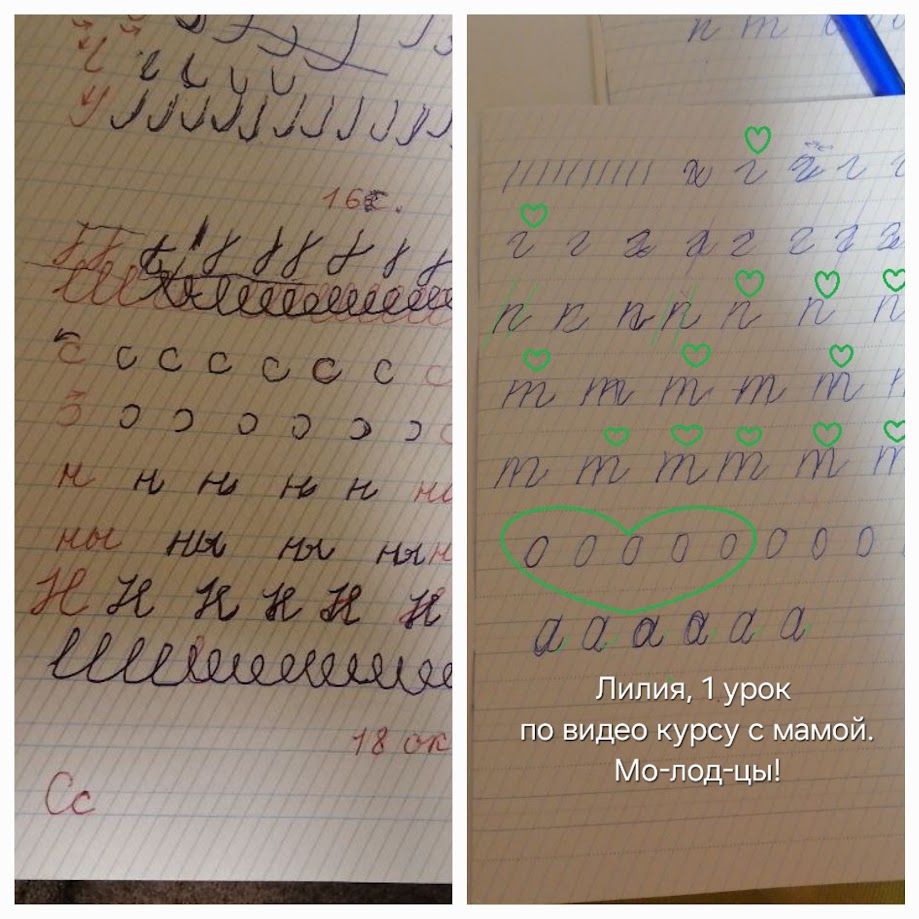 16
с с с с с с с с
н н н н н
ны ны ны ны н
Н Н Н Н Н Н
18 ок
Сс
п т
г г г г г
г г г г г г г г
п п п п п п п
т т т т т
т т т т т т
о о о о о о о о
а а а а а а
Лилия, 1 урок
по видео курсу с мамой.
Мо-лод-цы!